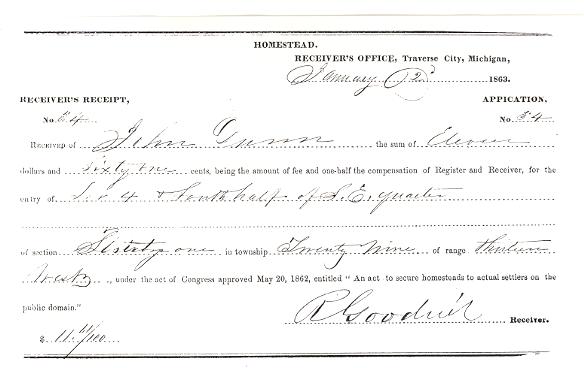 HOMESTEAD.
RECEIVER'S OFFICE, Traverse City, Michigan,
January 2d 1863.
RECEIVER'S RECEIPT, APPLICATION.
No. 54 No. 54
RECEIVED of John Dunn the sum of Eleven
dollars and sixty one cents, being the amount of fee and one-half the compensation of Register and Receiver, for the
entry of 4 & South half of S.E. quarter
of section Thirty one in township Twenty Nine of range thirteen
West, under the act of Congress approved May 20, 1862, entitled "An act to secure homesteads to actual settlers on the
public domain."
R Goodrich Receiver.
$ 11.61/100